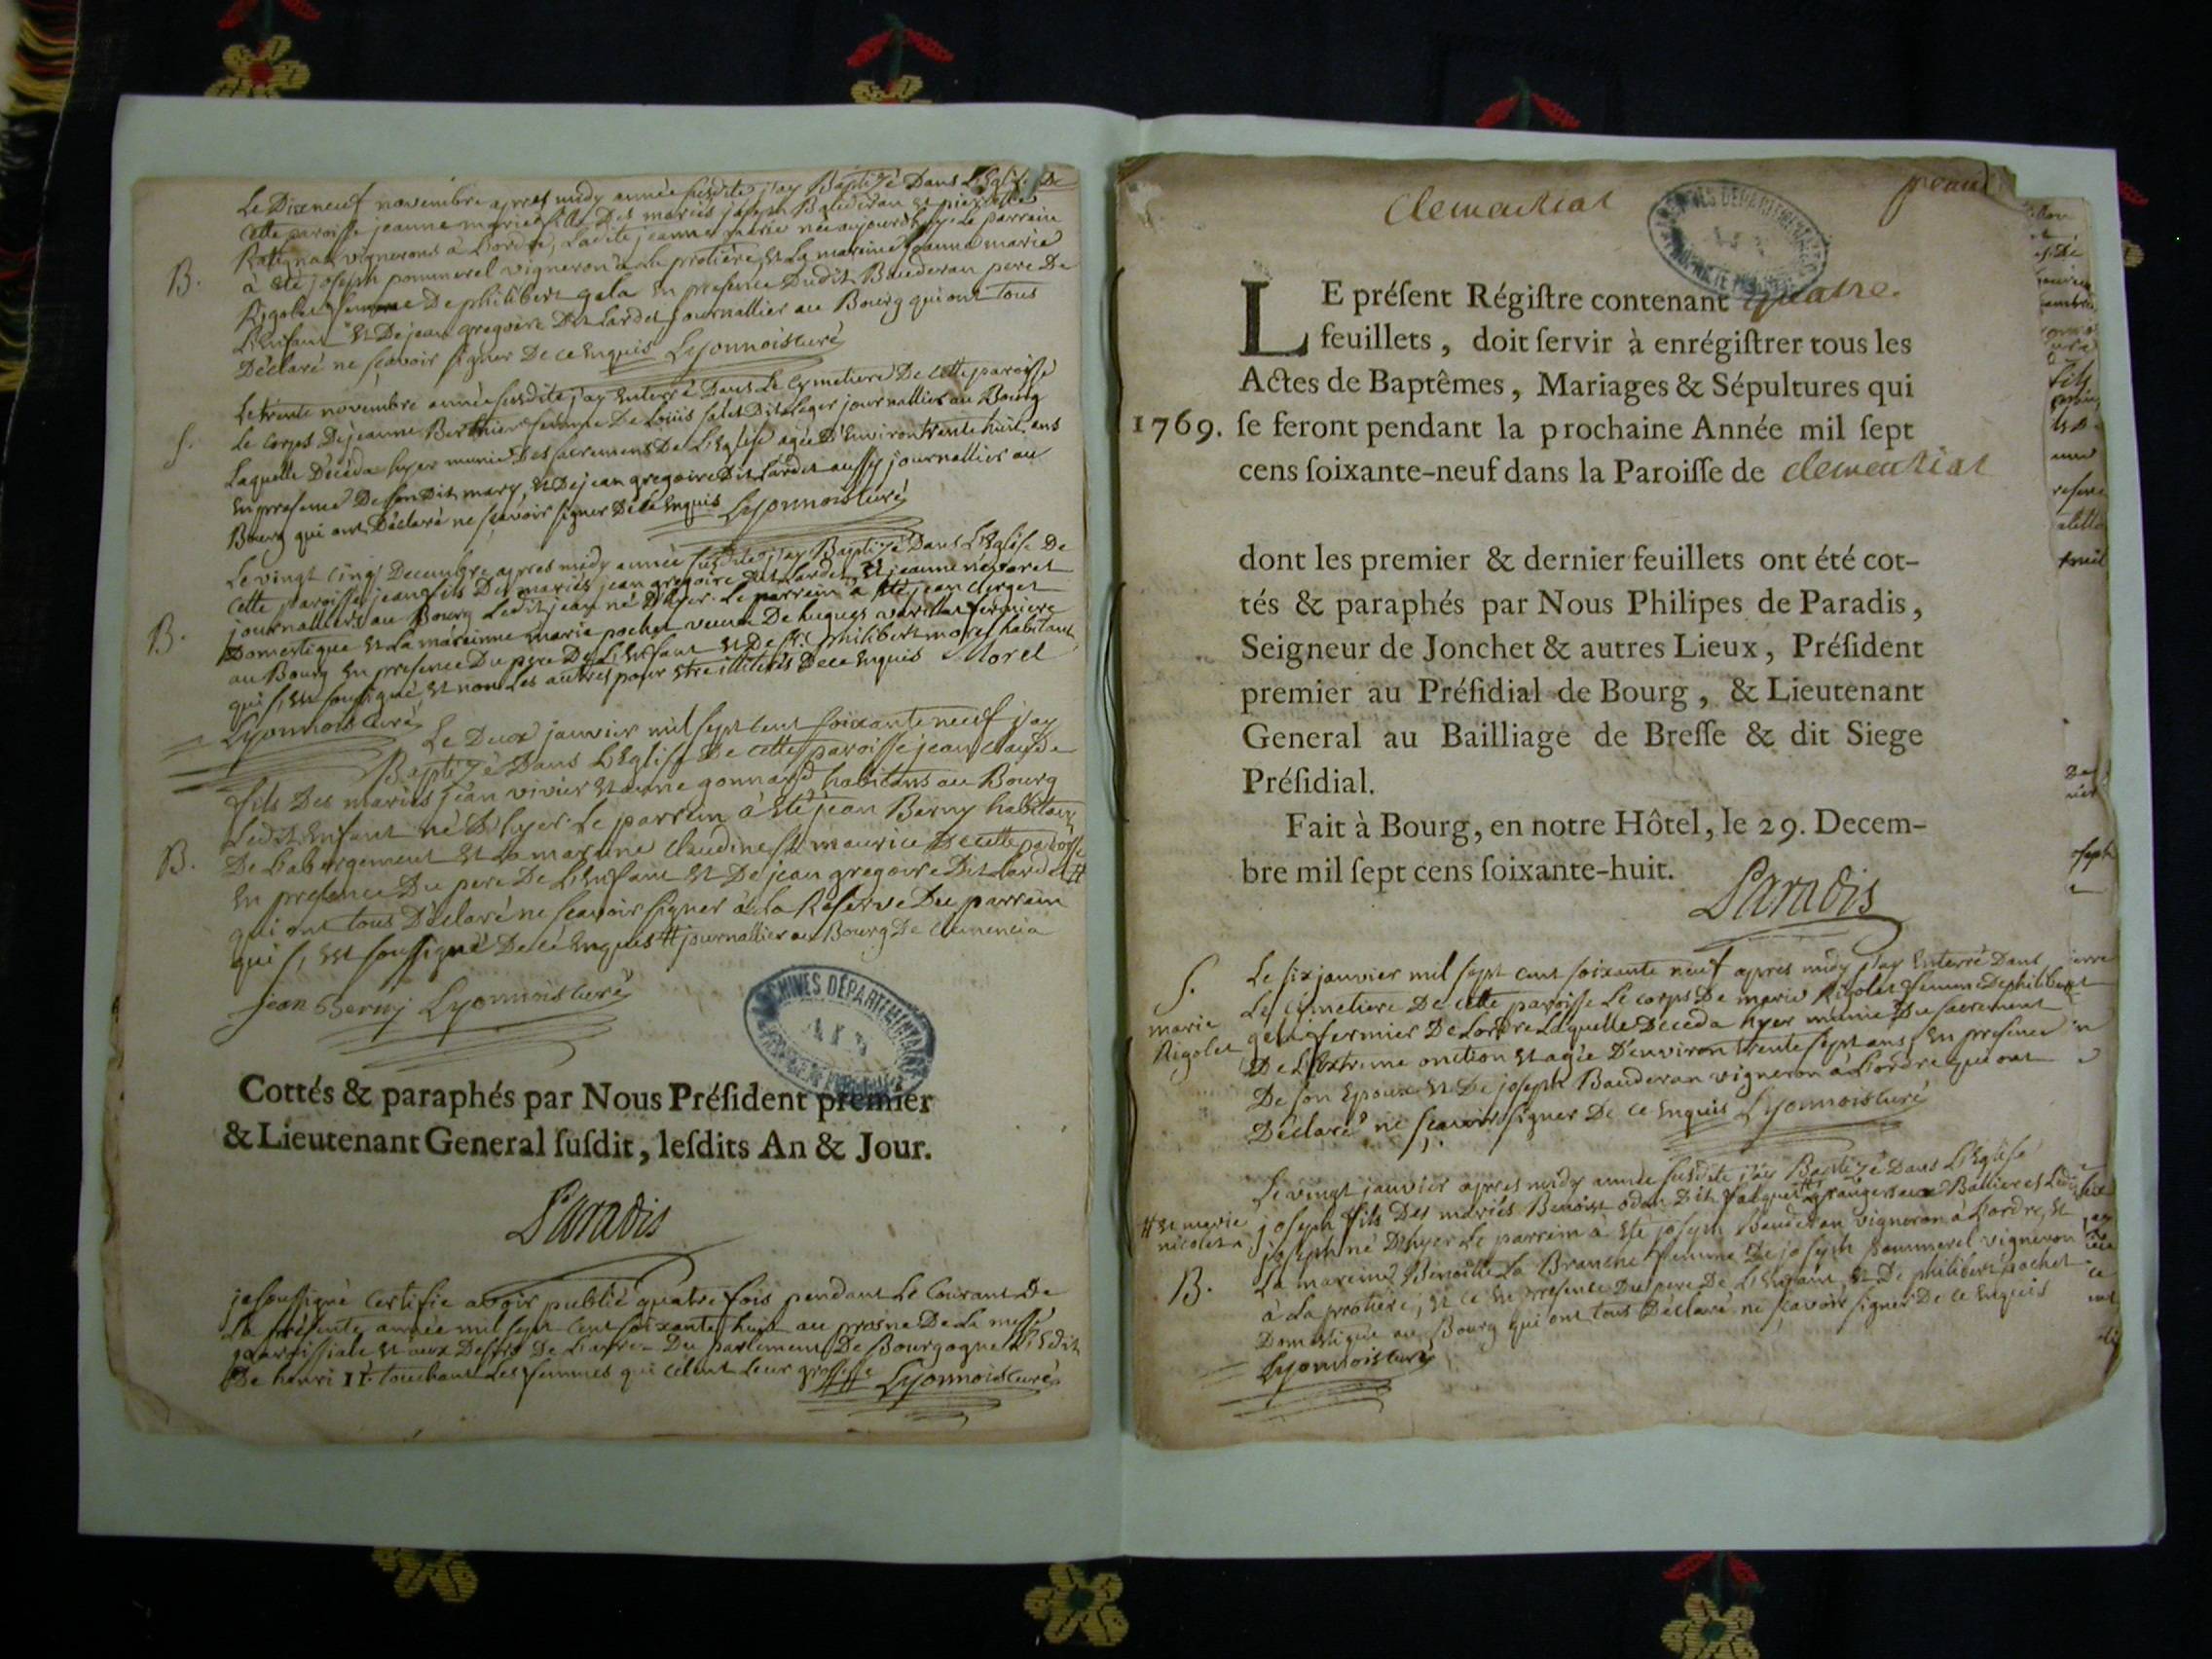 Le Dixneuf novembre apres midy année susdite j'ay Baptizé Dans L'Eglise De
cette paroisse jeanne marie fille Des mariés joseph Bauderan et pierrette
vignerons à Lordre, Ladite jeanne marie née aujourdhuy Le parrain
à eté joseph pommerel vigneron à La protiere, et La mareine jeanne marie
B.
Rigolet femme De philibert gela En presence Dudit Bauderan pere De
L'Enfant Et De jean gregoire Dit Lardet journallier au Bourg qui ont tous
Déclaré ne sçavoir signer De ce Enquis Lyonnois curé
Le trente novembre année susdite j'ay Enterré Dans Le Cymetiere De cette paroisse
S.
Le corps De jeanne Berthier femme De Loüis Dit Leger journallier au Bourg
Laquelle Décéda hyer munie Des sacremens De L'Eglise agée D'Environ trente huit ans
En presence De son Dit mary, Et De jean gregoire Dit Lardet aussy journallier au
Bourg qui ont Déclaré ne sçavoir signer De ce Enquis Lyonnois curé
Le vingt cinq Decembre apres midy année susdite j'ay Baptizé Dans L'Eglise De
cette paroisse jean fils Des mariés jean gregoire dit Lardet, Et jeanne
journalliers au Bourg Ledit jean né D'hyer. Le parrein a eté jean clerget
B.
Domestique Et La mareinne marie pochet veuve De hugues fermiere
au Bourg En presence Du pere De L'Enfant Et De Sr. philibert morel habitant
qui s'est soussigné, Et non Les autres pour etre illiterés De ce Enquis Morel
Lyonnois Curé
Le Deux janvier mil sept cent soixante neuf j'ay
Baptizé Dans L'Eglise De cette paroisse jean claude
fils Des mariés jean vivier Et anne gonnard habitans au Bourg
Ledit Enfant né D'hyer Le parrein à Eté jean Berny habitant
B.
De Labergement Et La mareine Claudine maurice De cette paroisse
En presence Du pere De L'Enfant Et De jean gregoire Dit Lardet #
qui ont tous Déclaré ne scavoir signer à La Reserve Du parrein
qui s'est soussigné De ce Enquis # journallier au Bourg De clemencia
jean Berny Lyonnois curé
ARCHIVES DÉPARTEMENTALES
Cottés & paraphés par Nous Préſident premier
& Lieutenant General ſuſdit, leſdits An & Jour.
Paradis
je soussigné Certifie avoir publié quatre fois pendant Le Courant De
La présente année mil sept cent soixante huit au prosne De La messe
paroissiale Et aux De L'arret Du parlement De Bourgogne L'Edit
De henri II. touchant Les femmes qui celent Leur grossesse Lyonnois curé
Clementiat
ARCHIVES DÉPARTEMENTALES
LE préſent Régiſtre contenant quatre.
feuillets, doit ſervir à enrégiſtrer tous les
Actes de Baptêmes, Mariages & Sépultures qui
1769. ſe feront pendant la prochaine Année mil ſept
cens ſoixante-neuf dans la Paroiſſe de clementiat
dont les premier & dernier feuillets ont été cot-
tés & paraphés par Nous Philipes de Paradis,
Seigneur de Jonchet & autres Lieux, Préſident
premier au Préſidial de Bourg, & Lieutenant
General au Bailliage de Breſſe & dit Siege
Préſidial.
Fait à Bourg, en notre Hôtel, le 29. Decem-
bre mil ſept cens ſoixante-huit.
Paradis
S.
marie
Rigolet
Le six janvier mil sept cent soixante neuf apres midy j'ay Enterré Dans
Le Cymetiere De cette paroisse Le corps De marie Rigolet femme De philibert
gela fermier De Lordre Laquelle Deceda hyer munie Du sacrement
De L'Extreme onction Et agée D'environ trente sept ans, En presence
De son Epoux Et De joseph Bauderan vigneron à Lordre qui ont
Déclaré ne sçavoir signer De ce Enquis Lyonnois curé
Le vingt janvier apres midy année susdite j'ay Baptizé Dans L'Eglise
# et marie
nicolet
joseph fils Des mariés Benoist odan Dit # grangers aux Ballieres Ledit
joseph né D'hyer Le parrein à Eté joseph Bauderan vigneron à Lordre, Et
B.
La mareine Benoitte La Branche femme De joseph pommerel vigneron
à La protiere, Et ce En presence Du pere De L'Enfant, Et De philibert pochet
Domestique au Bourg qui ont tous Déclaré ne sçavoir signer De ce Enquis
Lyonnois curé